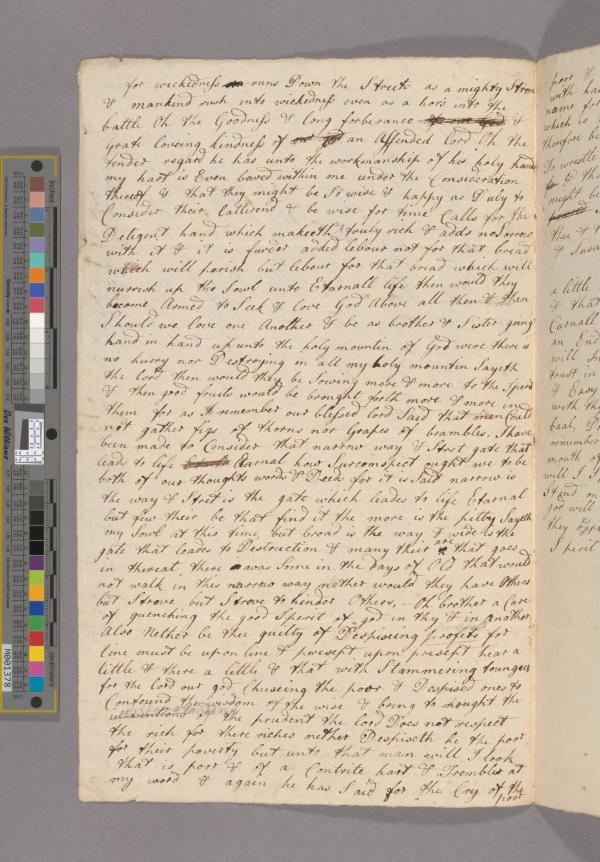 for wickedness runs Down the Streets as a mighty Strem
& mankind rush into wickedness even as a hors into the
battle Oh the Goodness & Long forberance &
grate loveing kindness of an Affended Lord Oh the
tender regard he has unto the workmanship of his holy hands
my hart is Even bowed within me under the Consideration
thereof & that they might be So wise & happy as Duly to
Consider their latterend & be wise for time Calls for the
Deligent hand which maketh truly rich & adds no Sorrow
with it & it is furder added labour not for that bread
which will perish but labour for that bread which will
nurrish up the Sowl unto Etarnall life then would they
become Armed to Seek & Love God Above all then & then
Should we love one Another & be as brother & Sister going
hand in hand up unto the holy mountin of God were there is
no hurry nor Destroying in all my holy mountin Sayeth
the Lord then would they be Sowing more & more to the Sperit
& then good fruits would be brought forth more & more in
them for as I remember our blessed lord Said that men Could
not gather figs of thorns nor Grapes of brambles. I have
been made to Consider that narrow way & Stret gate that
leads to life Etarnal how Surcomspect ought we to be
both of our thoughts words & Deeds for it is Said narrow is
the way & Stret is the gate which leades to life Etarnal
but few their be that find it the more is the pitty Sayeth
my Sowl at this time, but broad is the way & wide is the
gate that leades to Destruction & many their are that goes
in thereat there was Some in the days of Old that would
not walk in this narrow way nether would they have Others
but Strove to hinder Others, Oh brother a Care
of quenching the good Sperit of god in thy & in another
Also Nether be thee guilty of Despiseing profets for
line must be upon line & presept upon presept hear a
little & there a little & that with Stammering toungues
for the Lord our god Chuseing the poor & Despised ones to
Confound the wisdom of the wise & bring to nought the
of the prudent the Lord Does not respect
the rich for there riches nether Despiseth he the poor
for their poverty but unto that man will I look
that is poor & of a Contrite hart & Trembles at
my word & again he has Said for the Cry of the
poor
poor &
with ha
name for
which is
therefore be
To wrestle
& th
might be
the &
& Susa
a little
& that
Carnall
an End
will
trust in
& Easy
with the
baal, D
remember
mouth of
will I
Stand
for will
they
Sperit
inches
centimeters
Don Williams
M001378